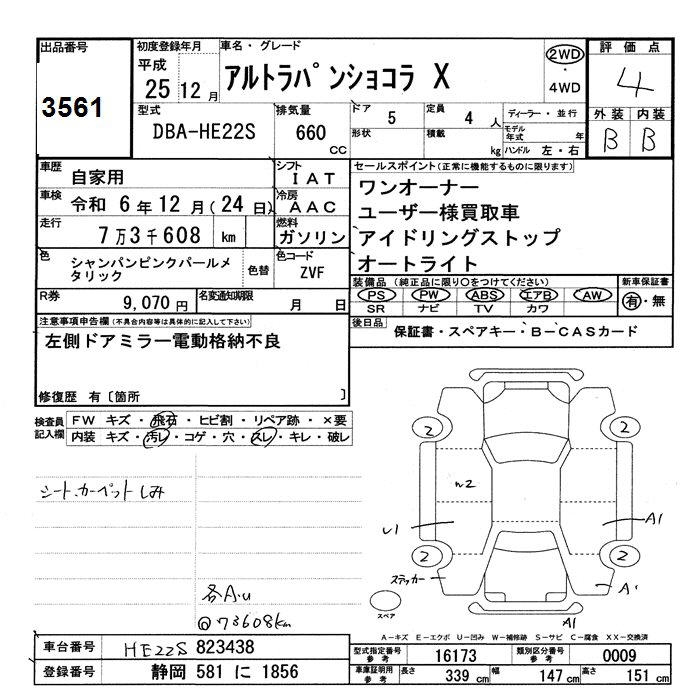 出品番号
3561
初度登録年月
平成
25 12 月
車名・グレード
アルトラパンショコラ X
2WD
・
4WD
評価点
4
外装 内装
B B
型式
DBA-HE22S
排気量
660 CC
ドア 5
定員 4 人
形状
積載 kg
ディーラー・並行
モデル年式 年
ハンドル 左・右
車歴 自家用
シフト IAT
車検 令和 6年12月(24日)
冷房 AAC
走行 7万3千608 km
燃料 ガソリン
色 シャンパンピンクパールメタリック
色替
色コード ZVF
R券 9,070円
名変通知期限 月 日
セールスポイント(正常に機能するものに限ります)
ワンオーナー
ユーザー様買取車
アイドリングストップ
オートライト
装備品(純正品に限り○をつけてください)
PS PW ABS エアB AW
SR ナビ TV カワ
新車保証書
有・無
後日品
保証書・スペアキー・B-CASカード
注意事項申告欄(不具合内容等は具体的に記入して下さい)
左側ドアミラー電動格納不良
修復歴 有〔箇所 〕
検査員記入欄
FW キズ・飛石・ヒビ割・リペア跡・×要
内装 キズ・汚レ・コゲ・穴・スレ・キレ・破レ
シート、カーペットしみ
各A,U
@73608km
2 2
W2
U1
A1
2 2
ステッカー
A'
スペア
A1
A-キズ E-エクボ U-凹み W-補修跡 S-サビ C-腐食 XX-交換済
車台番号 HE22S 823438
登録番号 静岡 581 に 1856
型式指定番号参考 16173
類別区分番号参考 0009
車庫証明用参考 長さ 339 cm 幅 147 cm 高さ 151 cm